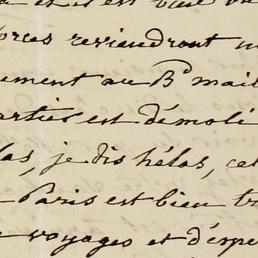 et il est bien
forces reviendront
ument au Bd mail
arties est démoli
las, je dis hélas, cet
Paris est bien tr
voyages et d'espe